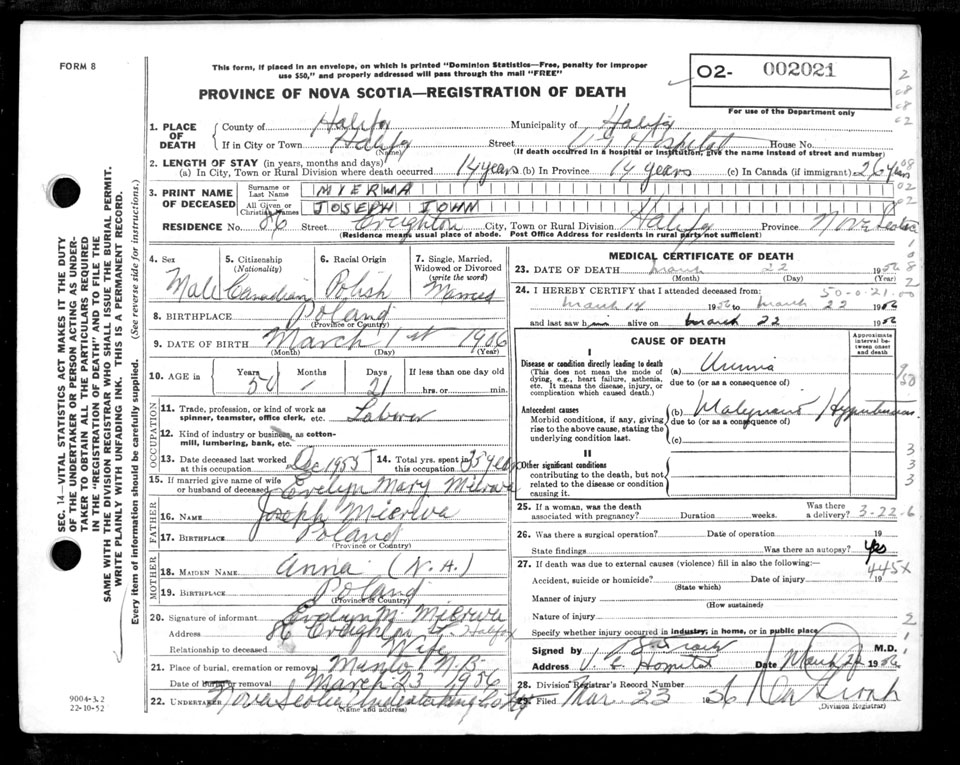 FORM 8
This form, if placed in an envelope, on which is printed "Dominion Statistics—Free, penalty for improper
use $50," and properly addressed will pass through the mail "FREE"
02- 002021
For use of the Department only
PROVINCE OF NOVA SCOTIA—REGISTRATION OF DEATH
1. PLACE OF DEATH
County of Halifax Municipality of Halifax
If in City or Town Halifax (Name) Street V G Hospital House No.
(If death occurred in a hospital or institution, give the name instead of street and number)
2. LENGTH OF STAY (in years, months and days)
(a) In City, Town or Rural Division where death occurred 14 years (b) In Province 14 years (c) In Canada (if immigrant) 26 years
3. PRINT NAME OF DECEASED
Surname or Last Name MIERWA
All Given or Christian Names JOSEPH JOHN
RESIDENCE No. 86 Street Creighton City, Town or Rural Division Halifax Province Nova Scotia
(Residence means usual place of abode. Post Office Address for residents in rural parts not sufficient)
4. Sex Male
5. Citizenship (Nationality) Canadian
6. Racial Origin Polish
7. Single, Married, Widowed or Divorced (write the word) Married
8. BIRTHPLACE Poland
(Province or Country)
9. DATE OF BIRTH March 1st 1906
(Month) (Day) (Year)
10. AGE in Years 50 Months - Days 21 If less than one day old
hrs. or min.
OCCUPATION
11. Trade, profession, or kind of work as spinner, teamster, office clerk, etc. Laborer
12. Kind of industry or business, as cotton-mill, lumbering, bank, etc.
13. Date deceased last worked at this occupation Dec 1955
14. Total yrs. spent in this occupation 35 years
15. If married give name of wife or husband of deceased Evelyn Mary Mierwa
FATHER
16. NAME Joseph Mierwa
17. BIRTHPLACE Poland
(Province or Country)
MOTHER
18. MAIDEN NAME Anna (N.A.)
19. BIRTHPLACE Poland
(Province or Country)
20. Signature of informant Evelyn M. Mierwa
Address 86 Creighton St. Halifax
Relationship to deceased Wife
21. Place of burial, cremation or removal Minto N.B.
Date of burial or removal March 23 1956
22. UNDERTAKER Nova Scotia Undertaking Co
(Name and address)
MEDICAL CERTIFICATE OF DEATH
23. DATE OF DEATH March 22 1956
(Month) (Day) (Year)
24. I HEREBY CERTIFY that I attended deceased from:
50-0-21-00
March 14 1956 to March 22 1956
and last saw him alive on March 22 1956
CAUSE OF DEATH
Approximate interval between onset and death
I
Disease or condition directly leading to death
(This does not mean the mode of dying, e.g., heart failure, asthenia, etc. It means the disease, injury, or complication which caused death.)
(a) Uremia
due to (or as a consequence of)
Antecedent causes
Morbid conditions, if any, giving rise to the above cause, stating the underlying condition last.
(b) Malignant Hypertension
due to (or as a consequence of)
(c)
II
Other significant conditions
contributing to the death, but not related to the disease or condition causing it.
25. If a woman, was the death associated with pregnancy? Duration weeks. Was there a delivery? 3-22-6
26. Was there a surgical operation? Date of operation 19
State findings Was there an autopsy? yes
27. If death was due to external causes (violence) fill in also the following:—
445X
Accident, suicide or homicide? Date of injury 19
(State which)
Manner of injury
(How sustained)
Nature of injury
Specify whether injury occurred in industry, in home, or in public place
Signed by M.D.
Address V. G. Hospital Date March 22 1956
28. Division Registrar's Record Number
29. Filed Mar. 23 1956
(Division Registrar)
SEC. 14—VITAL STATISTICS ACT MAKES IT THE DUTY
OF THE UNDERTAKER OR PERSON ACTING AS UNDER-
TAKER TO OBTAIN ALL THE PARTICULARS REQUIRED
IN THE "REGISTRATION OF DEATH" AND TO FILE THE
SAME WITH THE DIVISION REGISTRAR WHO SHALL ISSUE THE BURIAL PERMIT.
WRITE PLAINLY WITH UNFADING INK. THIS IS A PERMANENT RECORD.
Every item of information should be carefully supplied. (See reverse side for instructions.)
9004-3.2
22-10-52